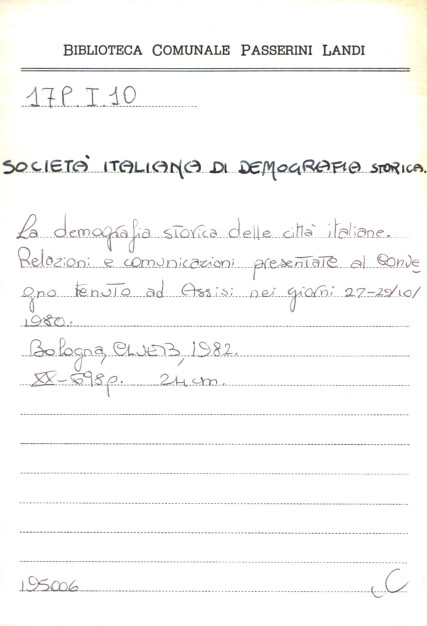 BIBLIOTECA COMUNALE PASSERINI LANDI
17P. I. 10
SOCIETA' ITALIANA DI DEMOGRAFIA STORICA.
La demografia storica delle città italiane.
Relazioni e comunicazioni presentate al Conve
gno tenuto ad Assisi nei giorni 27-29/10/
1980.
Bologna, CLUEB, 1982.
XX-698p. 24cm.
195006
C